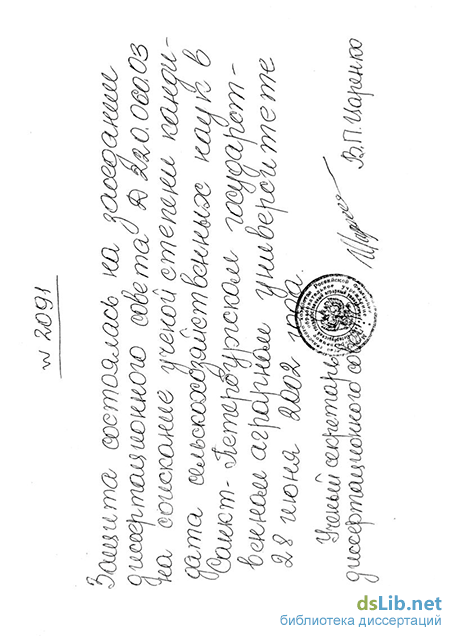 № 2091
Защита состоялась на заседании
диссертационного совета Д 220.060.03
на соискание ученой степени канди-
дата сельскохозяйственных наук в
Санкт-Петербургском государст-
венном аграрном университете
28 июня 2002 года.
Ученый секретарь
диссертационного совета
В.П. Царенко
dsLib.net
библиотека диссертаций